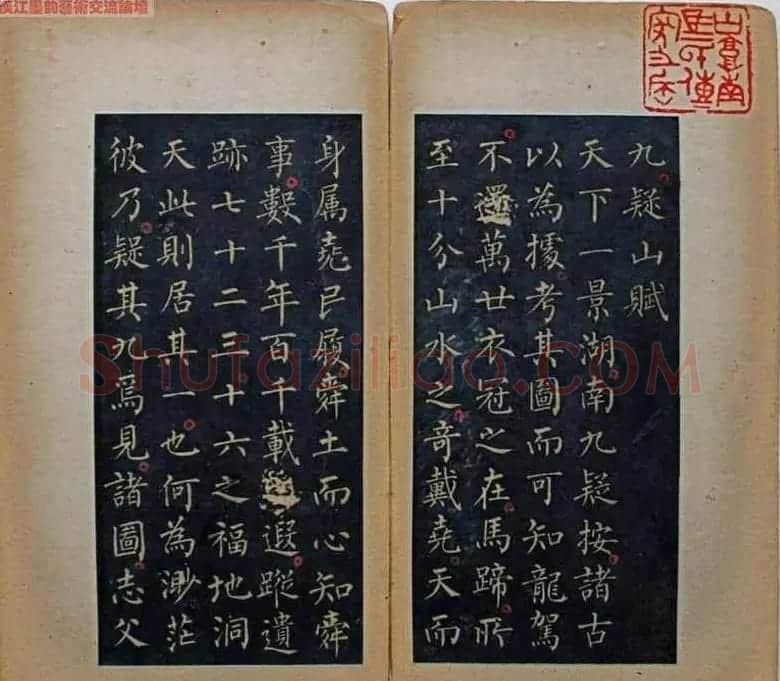 江墨韵藝術交流論壇
九疑山賦
天下一景湖南九疑按諸古
以為據考其圖而可知龍駕
不還萬世衣冠之在馬蹄所
至十分山水之奇戴堯天而
身属堯民履舜土而心知舜
事數千年百千載遐蹤遺
跡七十二三十六之福地洞
天此則居其一也何為渺茫
彼乃疑其九焉見諸圖志父
Shufaziliao.COM